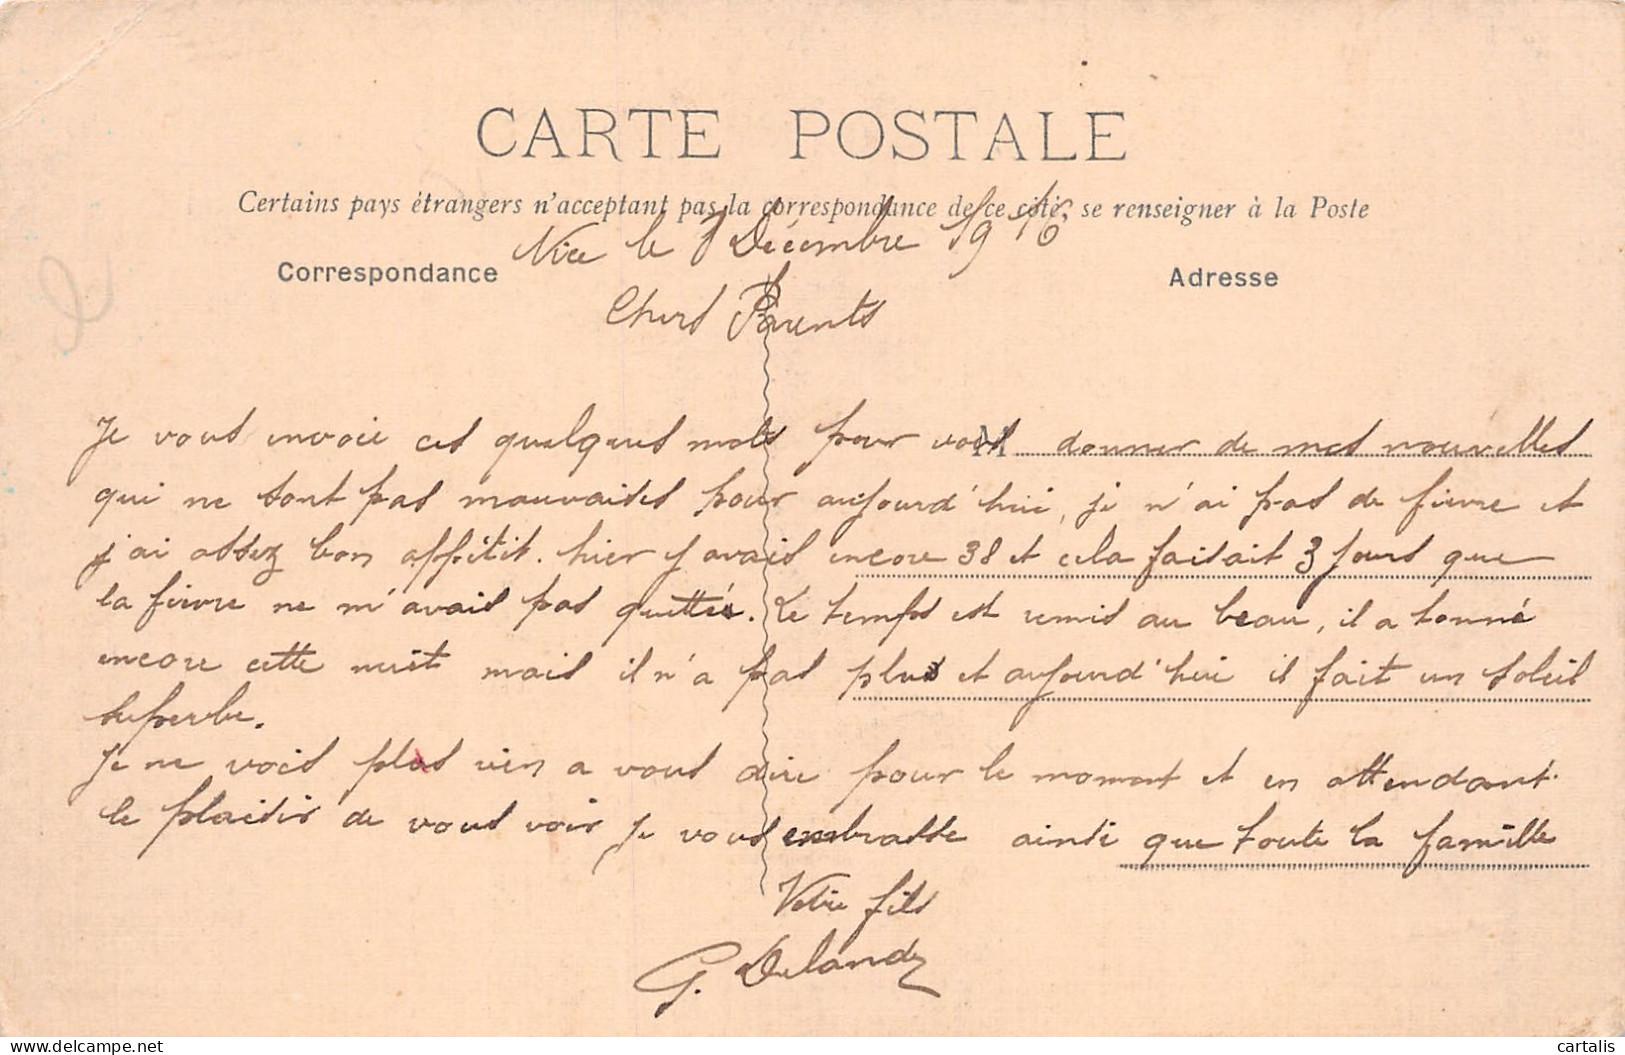 CARTE POSTALE
Certains pays étrangers n'acceptant pas la correspondance de ce côté, se renseigner à la Poste
Nice le 1 Décembre 1916
Correspondance
Adresse
Chers Parents
Je vous envoie ces quelques mots pour vous donner de mes nouvelles
M
qui ne sont pas mauvaises pour aujourd'hui, je n'ai pas de fievre et
j'ai assez bon appétit. hier j'avais encore 38 et cela faisait 3 jours que
la fievre ne m'avais pas quittés. Le temps est remis au beau, il a tonné
encore cette nuit mais il n'a pas plus et aujourd'hui il fait un soleil
superbe.
Je ne vois plus rien a vous dire pour le moment et en attendant
le plaisir de vous voir je vous embrasse ainsi que toute la famille
Votre fils
G. Delandz
cartalis
delcampe.net